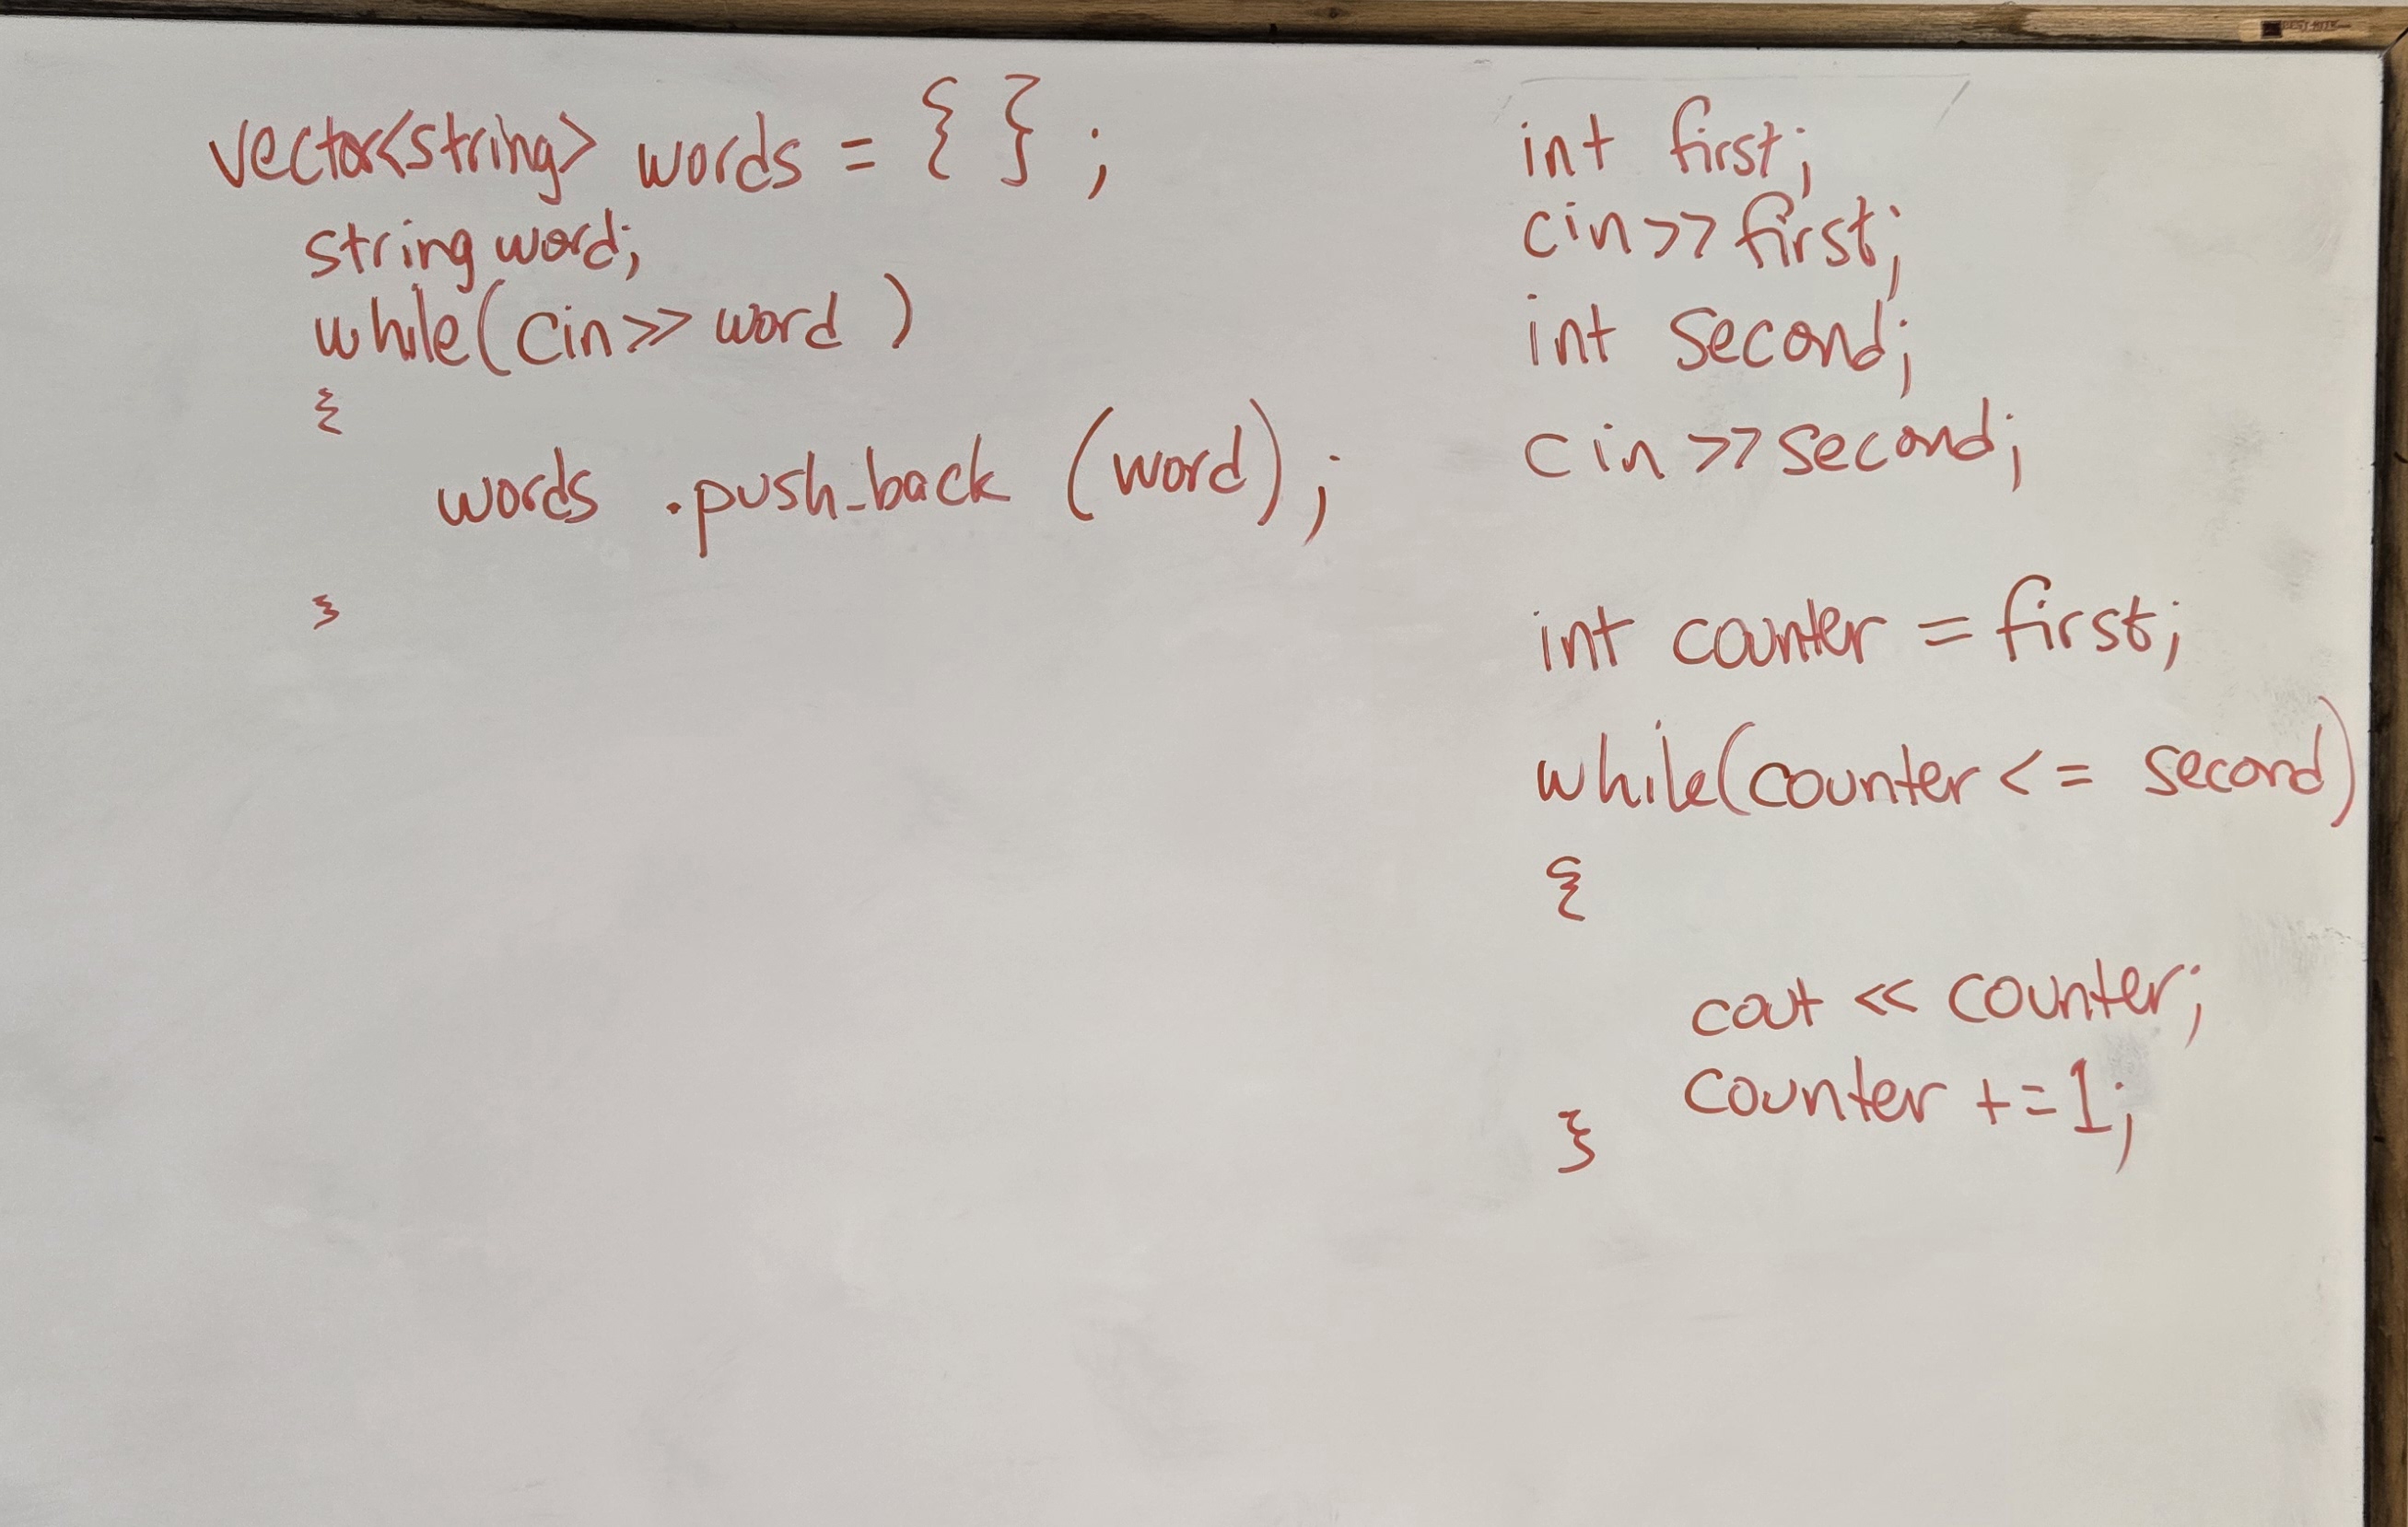 vector<string> words = { } ;
string word;
while(cin>> word )
{
words .push_back (word);
}
int first;
cin>> first;
int second;
cin >> second;
int counter = first;
while(counter <= second)
{
cout << counter;
counter += 1;
}